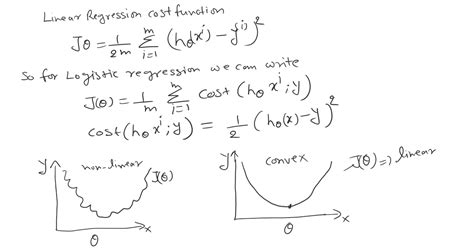 Linear Regression cost function
Jθ = 1/2m Σ i=1 m (hθ xⁱ) - yⁱ⁾)²
So for Logistic regression we can write
J(θ) = 1/m Σ i=1 m cost (hθ xⁱ; y)
cost (hθ xⁱ; y) = 1/2 (hθ(x) - y)²
y non-linear J(θ)
x
θ
y convex J(θ) => linear
x
θ